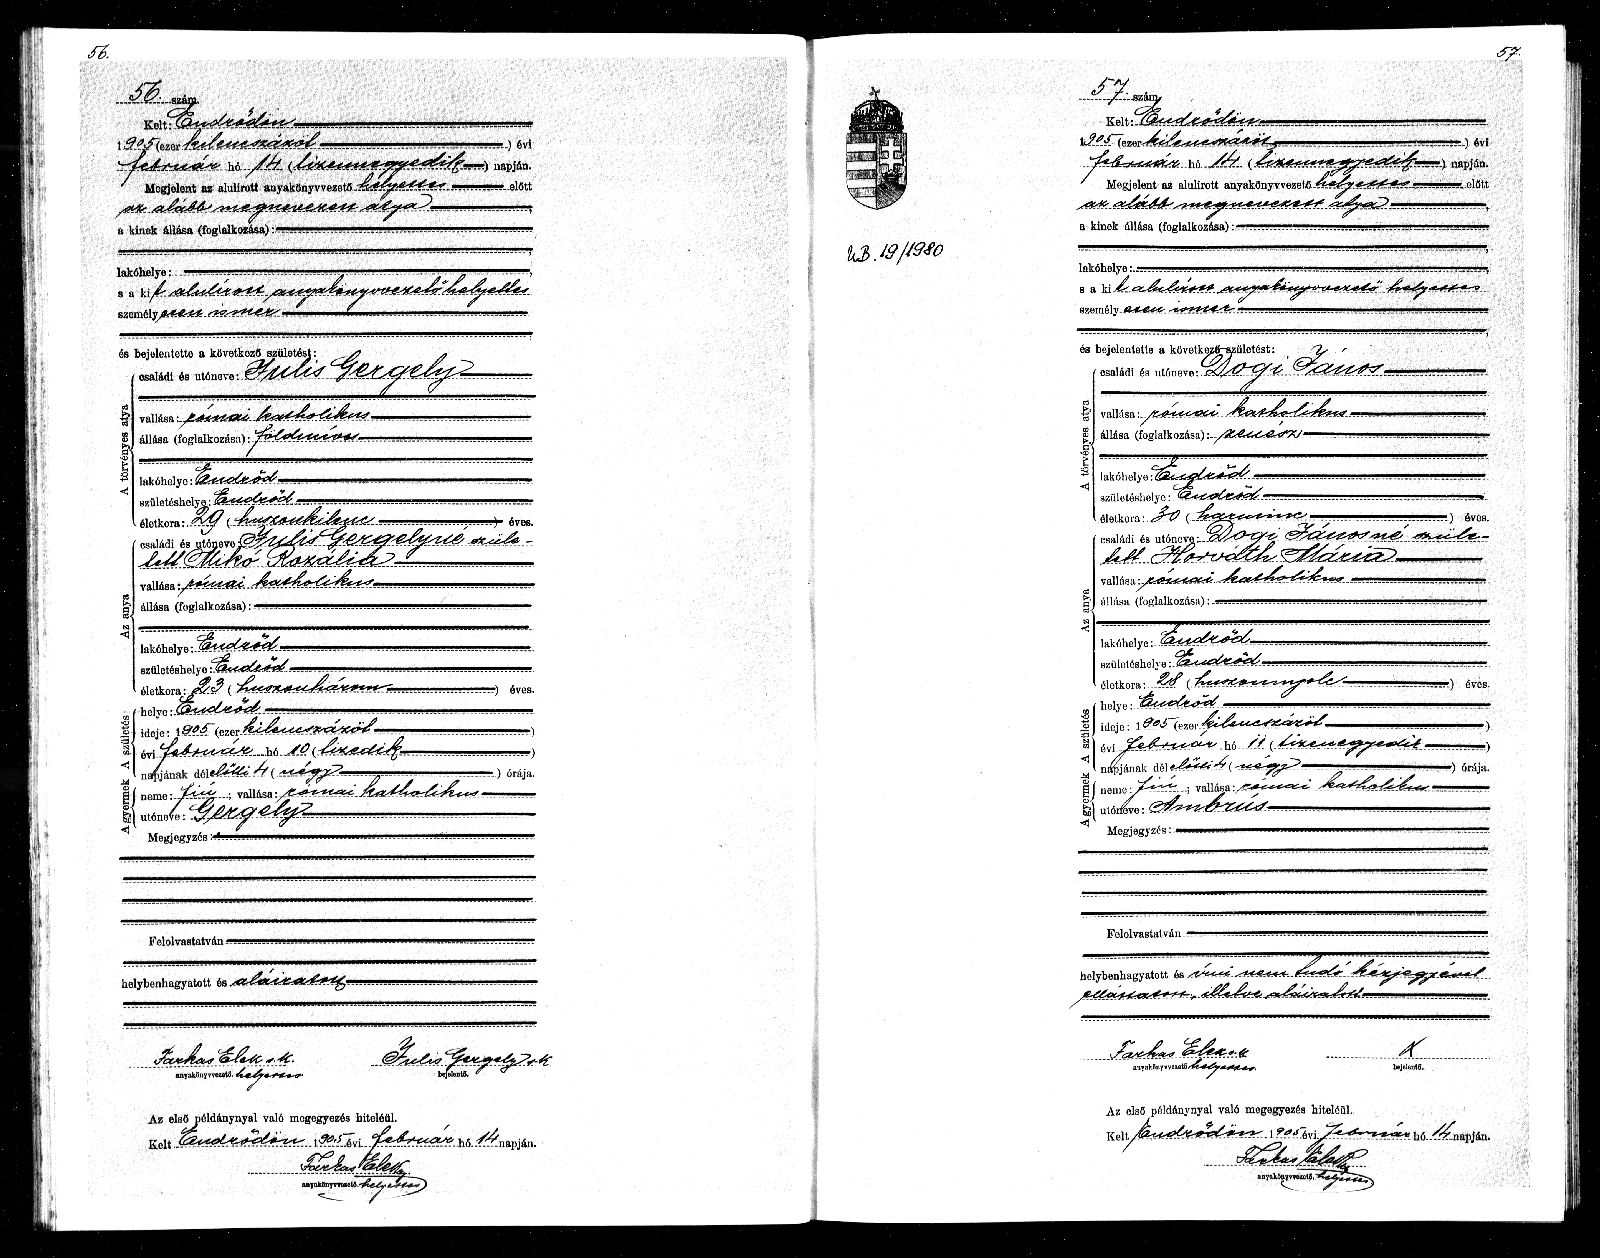 56.
56. szám.
Kelt: Endrődön
1905 (ezer kilencszázöt) évi
február hó 14 (tizennegyedik) napján.
Megjelent az alulírott anyakönyvvezető helyettes előtt
az alább megnevezett atya
a kinek állása (foglalkozása):
lakóhelye:
s a kit alulírott anyakönyvvezető helyettes
személyesen ismer
és bejelentette a következő születést:
A törvényes atya
családi és utóneve: Iulis Gergely
vallása: római katholikus
állása (foglalkozása): földmíves
lakóhelye: Endrőd
születéshelye: Endrőd
életkora: 29 (huszonkilenc) éves.
Az anya
családi és utóneve Iulis Gergelyné szüle-
tett Mikó Rozália
vallása: római katholikus
állása (foglalkozása):
lakóhelye: Endrőd
születéshelye: Endrőd
életkora: 23 (huszonhárom) éves.
A születés
helye: Endrőd
ideje: 1905 (ezer kilencszázöt)
évi február hó 10 (tizedik)
napjának délelőtti 4 (négy) órája.
A gyermek
neme: fiú; vallása: római katholikus
utóneve: Gergely
Megjegyzés:
Felolvastatván
helybenhagyatott és aláíratott
Farkas Elek s.k. Iulis Gergely s.k.
anyakönyvvezető. helyettes bejelentő.
Az első példánynyal való megegyezés hiteléül.
Kelt Endrődön 1905 évi február hó 14 napján.
Farkas Elek
anyakönyvvezető. helyettes
UB. 19/1980
57.
57. szám.
Kelt: Endrődön
1905 (ezer kilencszázöt) évi
február hó 14 (tizennegyedik) napján.
Megjelent az alulírott anyakönyvvezető helyettes előtt
az alább megnevezett atya
a kinek állása (foglalkozása):
lakóhelye:
s a kit alulírott anyakönyvvezető helyettes
személyesen ismer
és bejelentette a következő születést:
A törvényes atya
családi és utóneve: Dogi János
vallása: római katholikus
állása (foglalkozása): zenész
lakóhelye: Endrőd
születéshelye: Endrőd
életkora: 30 (harminc) éves.
Az anya
családi és utóneve: Dogi Jánosné szüle-
tett Horváth Mária
vallása: római katholikus
állása (foglalkozása):
lakóhelye: Endrőd
születéshelye: Endrőd
életkora: 28 (huszonnyolc) éves.
A születés
helye: Endrőd
ideje: 1905 (ezer kilencszázöt)
évi február hó 11 (tizenegyedik)
napjának délelőtti 4 (négy) órája.
A gyermek
neme: fiú; vallása: római katholikus
utóneve: Ambrús
Megjegyzés:
Felolvastatván
helybenhagyatott és írni nem tudó kézjegyével
elláttatott, illetve aláíratott
Farkas Elek s.k. X
anyakönyvvezető. helyettes bejelentő.
Az első példánynyal való megegyezés hiteléül.
Kelt Endrődön 1905 évi február hó 14 napján.
Farkas Elek
anyakönyvvezető. helyettes